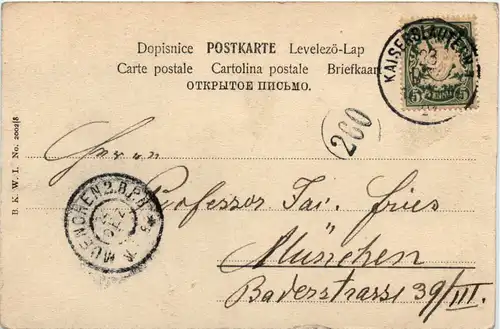 Dopisnice POSTKARTE Levelező-Lap
Carte postale Cartolina postale Briefkaart
ОТКРЫТОЕ ПИСЬМО.
KAISERSLAUTERN
5 5
260
B. K. W. I. No. 2002/8
Herrn
Professor Fries
MUENCHEN 2. B.P.A.
München
Baderstrasse 39/III.